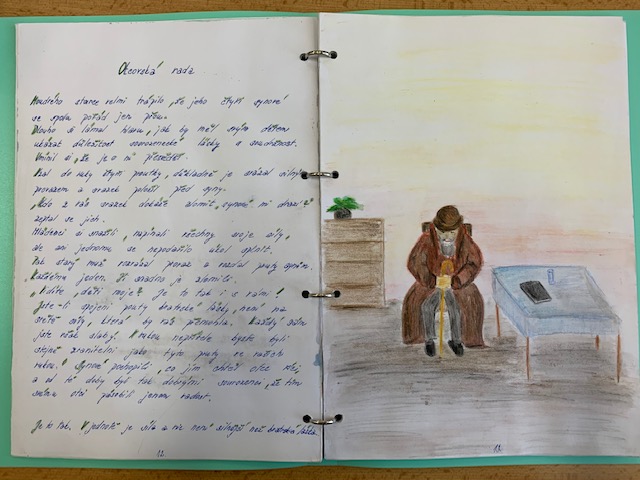 Otcovská rada
Moudrého starce velmi trápilo, že jeho čtyři synové
se spolu pořád jen přou.
Dlouho si lámal hlavu, jak by měl svým dětem
ukázat důležitost sourozenecké lásky a svornosti.
Umínil si, že je o ní přesvědčí.
Vzal do ruky čtyři proutky, důkladně je svázal silným
provazem a svazek položil před syny.
„Kdo z vás svazek dokáže zlomit, synové mí drazí?“
zeptal se jich.
Mládenci se snažili, napínali všechny svoje síly,
ale ani jednomu se nepodařilo úkol splnit.
Pak starý muž rozvázal provaz a rozdal pruty synům.
Každému jeden. Ti snadno je zlomili.
„Vidíte, děti moje? Je to tak i s vámi!
Jste-li spojeni pouty bratrské lásky, není na
světě síly, která by vás přemohla. Každý sám
jste však slabý. V rukou nepřítele byste byli
stejně zranitelní jako tyto pruty ve vašich
rukou.“ Synové pochopili, co jim chtěl otec říci,
a od té doby byli tak dobrými sourozenci, že tím
svému otci působili jenom radost.
Je to tak. V jednotě je síla a nic není silnější než bratrská láska.
12
13